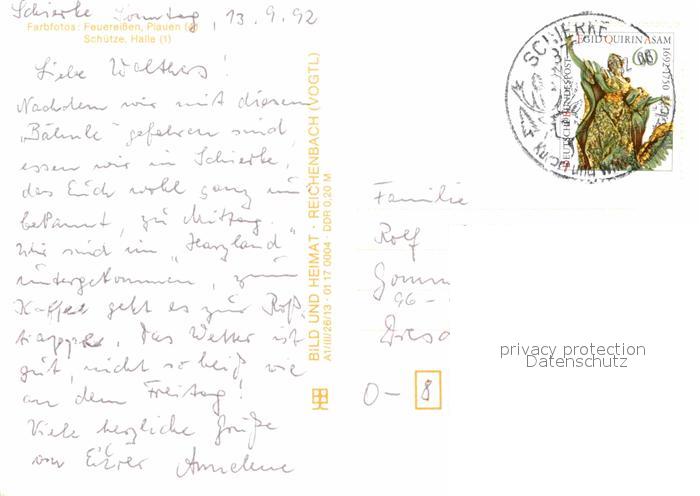 Schierke Sonntag, 13.9.92
Farbfotos: Feuereißen, Plauen (4)
Schütze, Halle (1)
Liebe Walthers!
Nachdem wir mit diesem
"Bähnle" gefahren sind,
essen wir in Schierke,
das Euch wohl ganz
bekannt, zu Mittag.
Wir sind im "Harzland"
untergekommen, zum
Kaffee geht es zur Roß-
trappe. Das Wetter ist
gut, nicht so heiß wie
an dem Freitag!
Viele herzliche Grüße
von Eurer Annelene
BILD UND HEIMAT · REICHENBACH (VOGTL)
A1/III/26/13 · 01 17 0004 · DDR 0,20 M
SCHIERKE
EGID QUIRIN ASAM
1692-1750
DEUTSCHE BUNDESPOST
60
Familie
Rolf
Gomm
96 -
Dresd
O - 8
privacy protection
Datenschutz